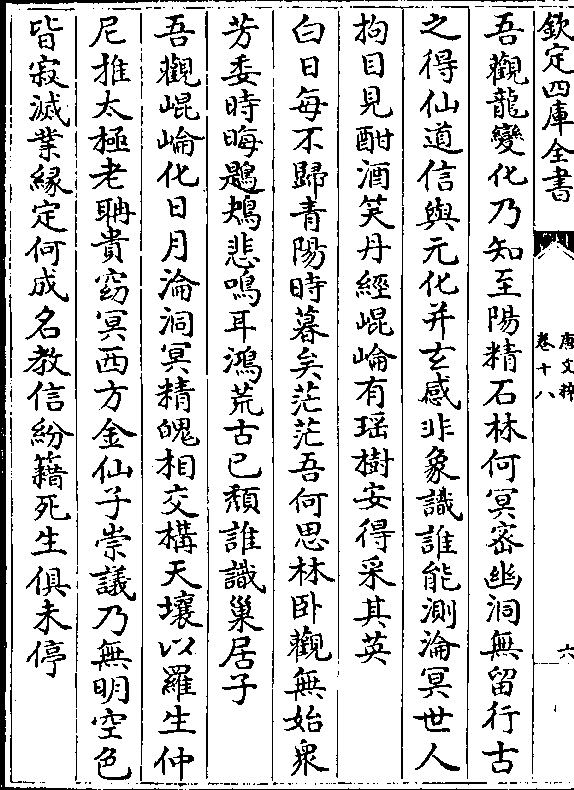 欽定四庫全書
唐文粹
卷十八
六
吾觀龍變化乃知至陽精石林何冥密幽洞無留行古
之得仙道信與元化并玄感非象識誰能測淪冥世人
拘目見酣酒笑丹經崐崘有瑶樹安得采其英
白日每不歸青陽時暮矣茫茫吾何思林卧觀無始衆
芳委時晦鶗鴂悲鳴耳鴻荒古已頽誰識巢居子
吾觀崐崘化日月淪洞冥精魄相交構天壤以羅生仲
尼推太極老聃貴窈冥西方金仙子崇議乃無明空色
皆寂滅業縁定何成名教信紛籍死生俱未停